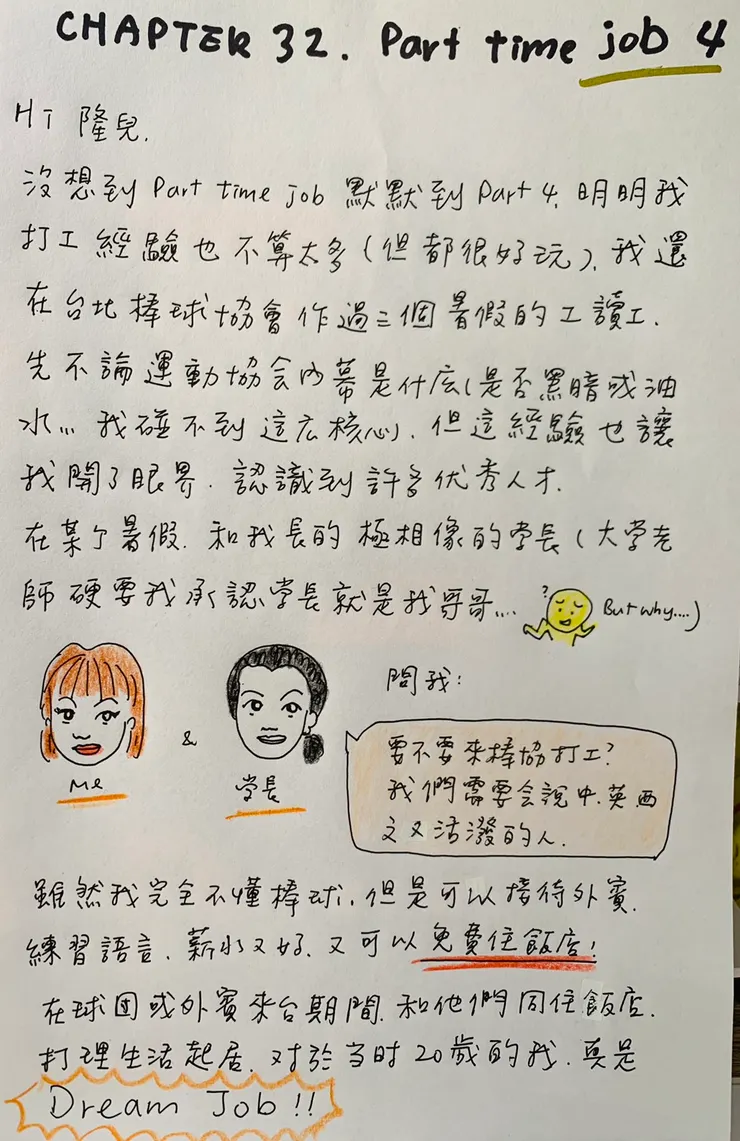 CHAPTER 32. Part time job 4
Hi 隆兒.
沒想到 Part time job 默默到 Part 4. 明明我
打工經驗也不算太多(但都很好玩), 我還
在台北棒球協會作過三個暑假的工讀工.
先不論運動協会內幕是什広(是否黑暗或油
水... 我碰不到這広核心). 但這經驗也讓
我開了眼界. 認識到許多优秀人才.
在某个暑假. 和我長的極相像的学長(大学老
師硬要我承認学長就是我哥哥....
? But why....)
問我:
Me & 学長
要不要來棒協打工?
我們需要会說中.英.西
文又活潑的人.
雖然我完全不懂棒球. 但是可以接待外賓.
練習語言. 薪水又好. 又可以免費住飯店!
在球団或外賓來台期間. 和他們同住飯店.
打理生活起居. 对於当时20歲的我. 真是
Dream Job!!